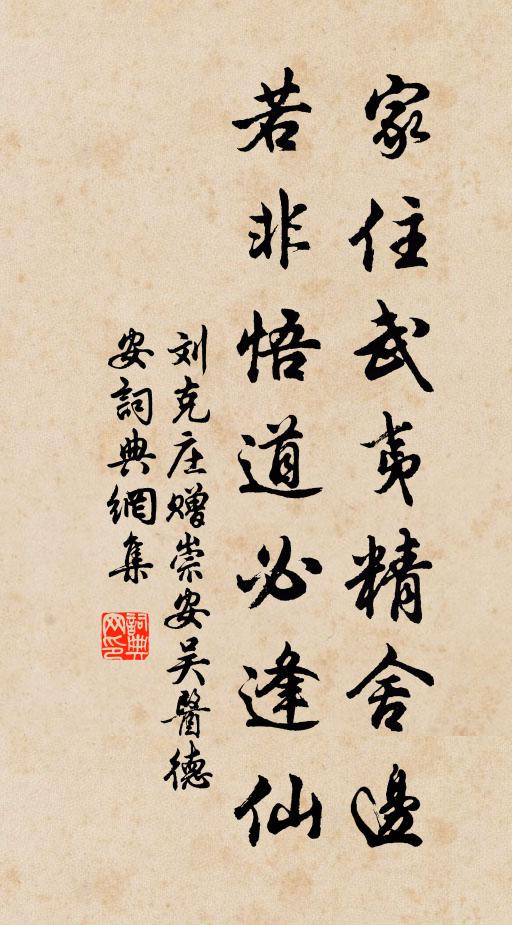 家住武夷精舍邊
若非悟道必逢仙
刘克庄赠崇安吴醫德
安詞典網集
詞典网印